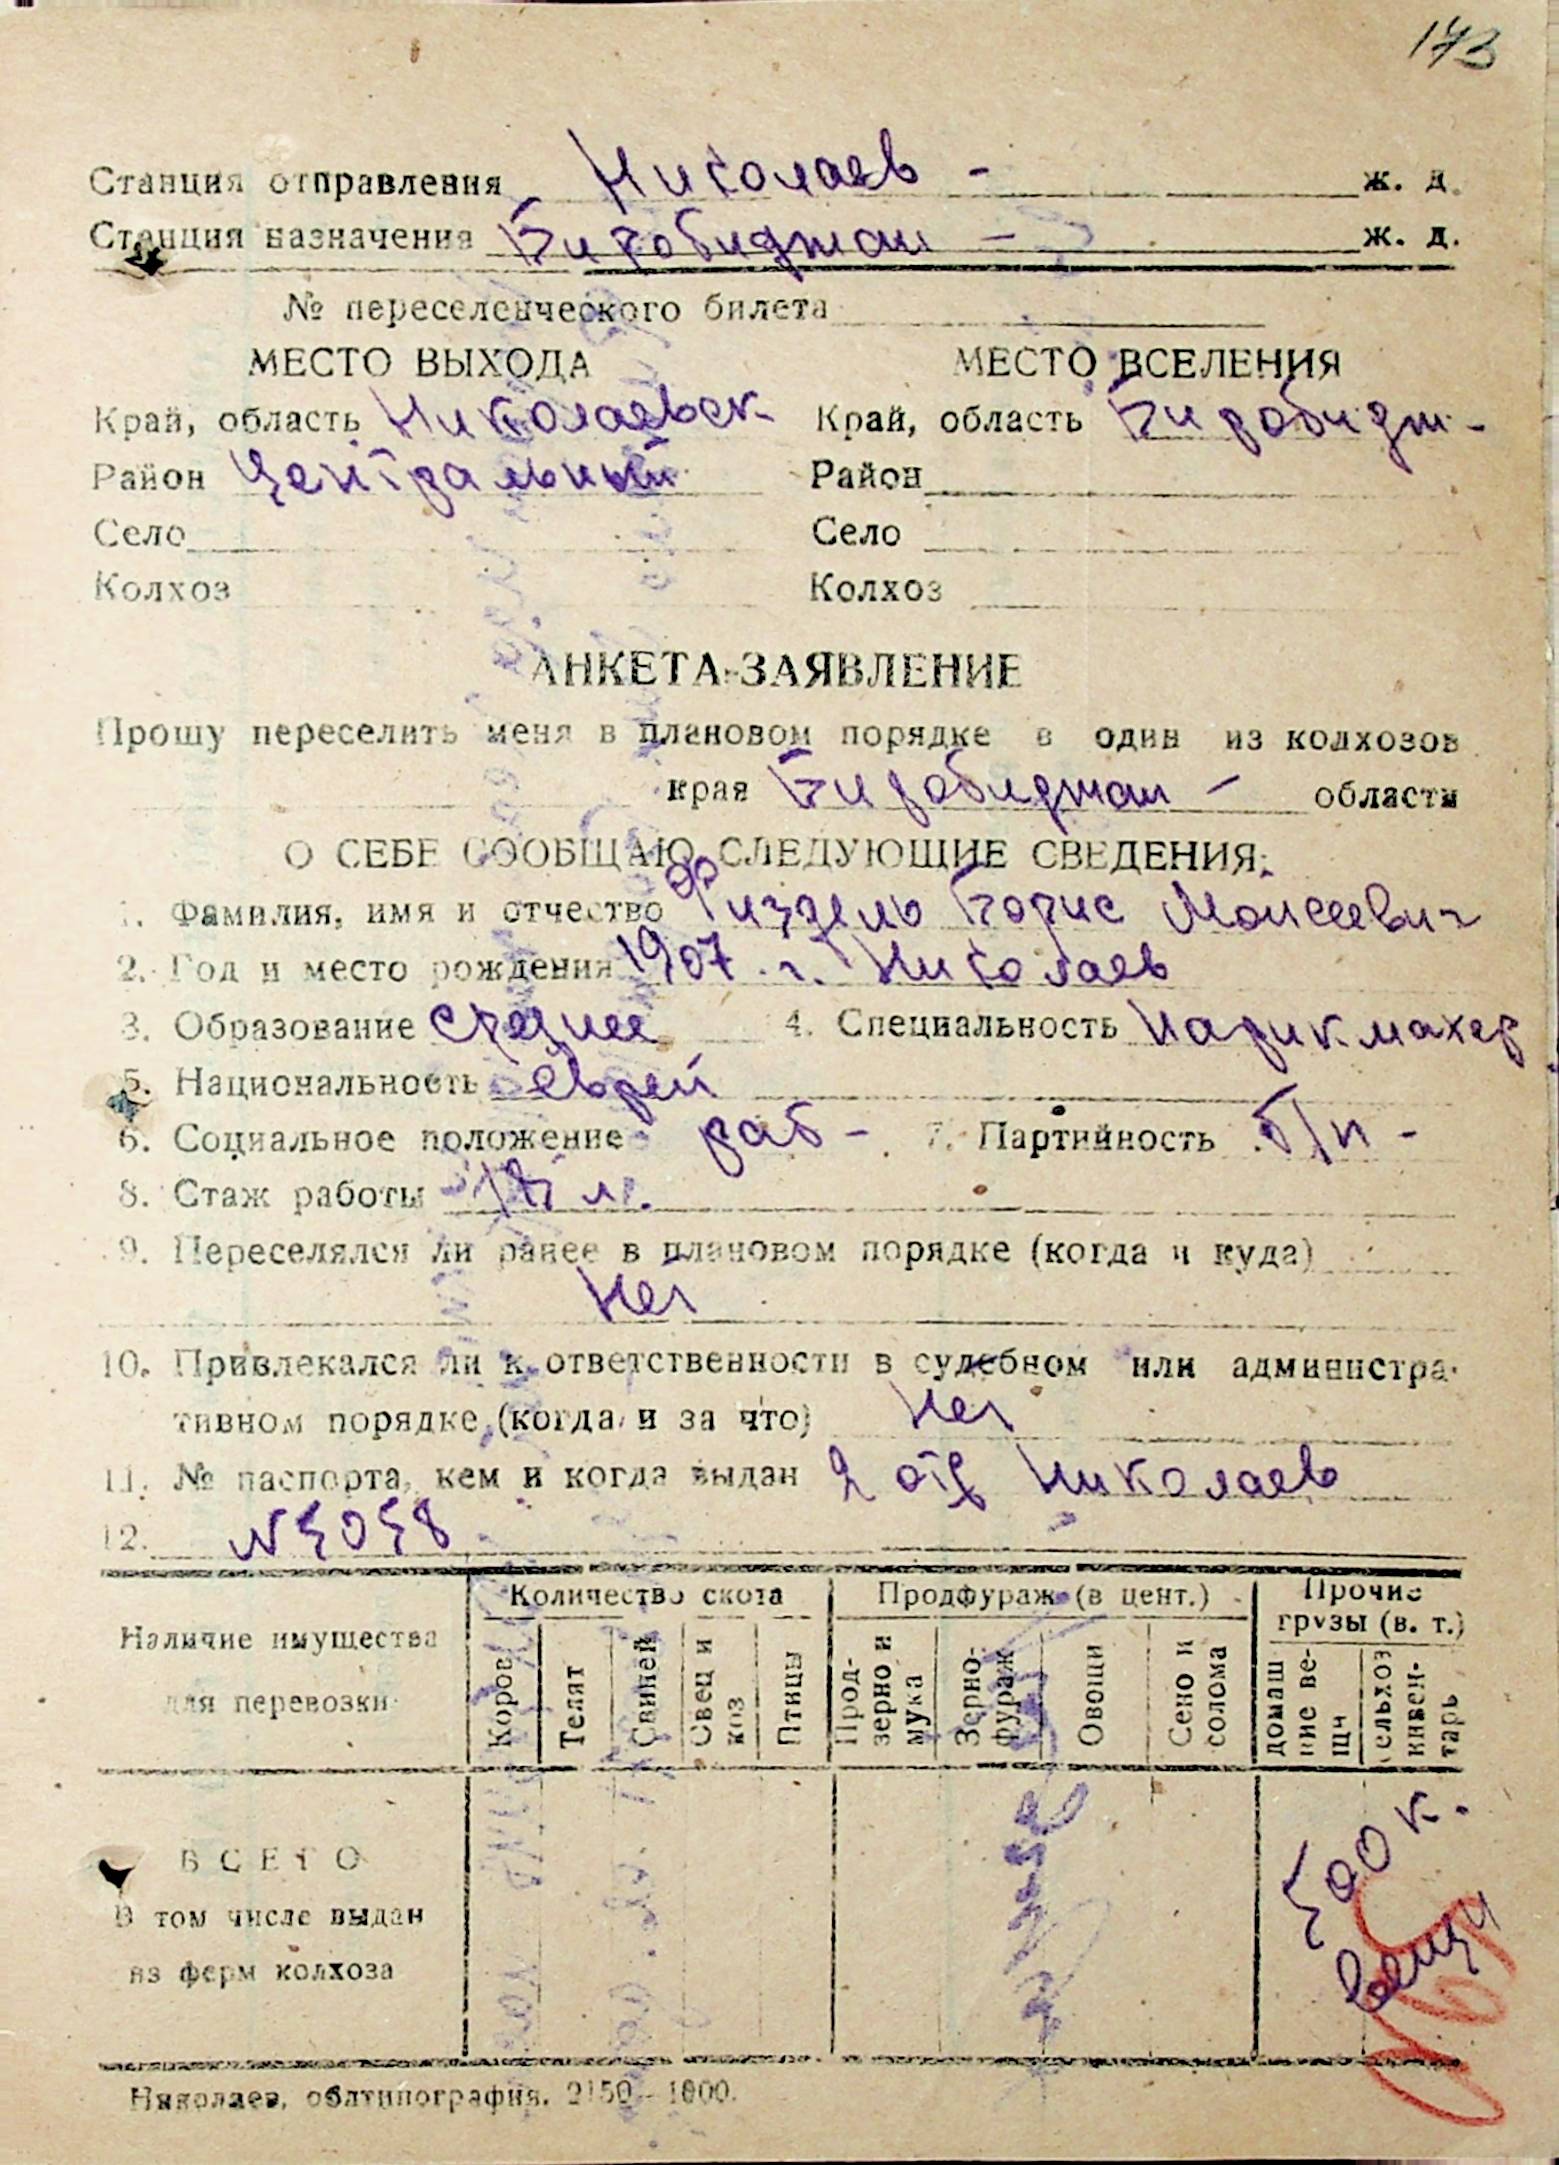 173
Станция отправления Николаев - ж. д.
Станция назначения Биробиджан - ж. д.
№ переселенческого билета
МЕСТО ВЫХОДА МЕСТО ВСЕЛЕНИЯ
Край, область Николаевск Край, область Биробидж-
Район Центральный Район
Село Село
Колхоз Колхоз
АНКЕТА-ЗАЯВЛЕНИЕ
Прошу переселить меня в плановом порядке в один из колхозов
края Биробиджан - области
О СЕБЕ СООБЩАЮ СЛЕДУЮЩИЕ СВЕДЕНИЯ:
1. Фамилия, имя и отчество Физдель Борис Моисеевич
2. Год и место рождения 1907 г. Николаев
3. Образование среднее 4. Специальность Парикмахер
5. Национальность еврей
6. Социальное положение раб - 7. Партийность б/п -
8. Стаж работы л.
9. Переселялся ли ранее в плановом порядке (когда и куда)
Нет
10. Привлекался ли к ответственности в судебном или администра-
тивном порядке (когда и за что) Нет
11. № паспорта, кем и когда выдан 2 отд Николаев
12. N 5058
Наличие имущества
для перевозки
Количество скота Продфураж (в цент.) Прочие
грузы (в. т.)
Коров Телят Свиней Овец и коз Птицы Прод-зерно и мука Зерно-фураж Овощи Сено и солома домаш-ние ве-щи сельхоз инвен-тарь
ВСЕГО
В том числе выдан
из ферм колхоза
500 к.
вещи
Николаев, облтипография. 2150—1000.